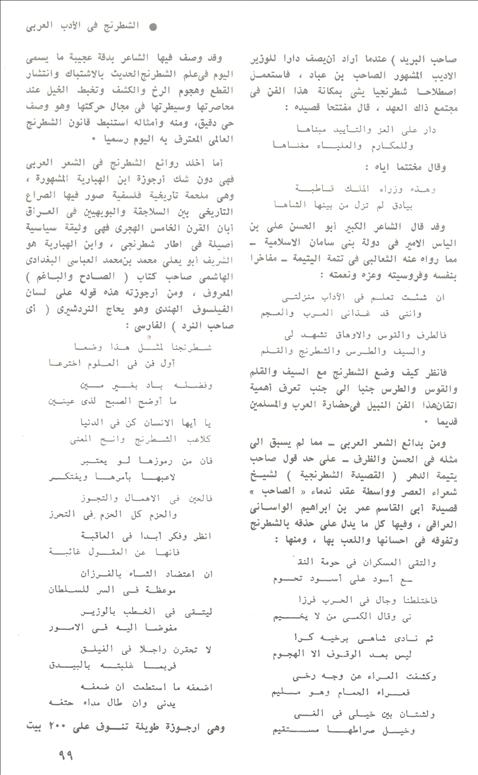 ● الشطرنج فى الأدب العربى
صاحب البريد ) عندما أراد أن يصف دارا للوزير
الاديب المشهور الصاحب بن عباد ، فاستعمل
اصطلاحا شطرنجيا يشى بمكانة هذا الفن فى
مجتمع ذاك العهد ، قال مفتتحا قصيده :
دار على العز والتأييد مبناها
وللمكارم والعلياء مغناها
وقال مختتما اياه :
وهذه وزراء الملك قاطبة
بيادق لم تزل من بينها الشاها
وقد قال الشاعر الكبير أبو الحسن على بن
الياس الامير فى دولة بنى سامان الاسلامية ـ
مما رواه عنه الثعالبى فى تتمة اليتيمة ـ مفاخرا
بنفسه وفروسيته وعزه ونعمته :
ان شئت تعلم فى الآداب منزلتى
وأننى قد غذانى العرب والعجم
فالطرف والقوس والاوهاق تشهد لى
والسيف والطرس والشطرنج والقلم
فأنظر كيف وضع الشطرنج مع السيف والقلم
والقوس والطرس جنبا الى جنب تعرف أهمية
اتقان هذا الفن النبيل فى حضارة العرب والمسلمين
قديما ٠
ومن بدائع الشعر العربى ـ مما لم يسبق الى
مثله فى الحسن والظرف ـ على حد قول صاحب
يتيمة الدهر ( القصيدة الشطرنجية ) لشيخ
شعراء العصر وواسطة عقد ندماء « الصاحب »
قصيدة أبى القاسم عمر بن ابراهيم الواسانى
العراقى ، وفيها كل ما يدل على حذقه بالشطرنج
وتفوقه فى احسانها واللعب بها ، ومنها :
والتقى العسكران فى حومة النقـ
ـع أسود على أسود تحوم
فاختلطنا وجال فى الحرب فرزا
نى وقال الكمى من لا يخيم
ثم نادى شاهى برخيه كرا
ليس بعد الوقوف الا الهجوم
وكشفت العراء عن وجه رخى
فعراه الحمام وهو سليم
ولشتان بين خيلى فى الفى
وخيل صراطها مستقيم
وقد وصف فيها الشاعر بدقة عجيبة ما يسمى
اليوم فى علم الشطرنج الحديث بالاشتباك وانتشار
القطع وهجوم الرخ والكشف وتخبط الخيل عند
محاصرتها وسيطرتها فى مجال حركتها وهو وصف
حى دقيق، ومنه وأمثاله استنبط قانون الشطرنج
العالمى المعترف به اليوم رسميا ٠
أما أخلد روائع الشطرنج فى الشعر العربى
فهى دون شك أرجوزة ابن الهبارية المشهورة ،
وهى ملحمة تأريخية فلسفية صور فيها الصراع
التأريخى بين السلاجقة والبويهيين فى العراق
أبان القرن الخامس الهجرى فهى وثيقة سياسية
أصيلة فى اطار شطرنجى ، وابن الهبارية هو
الشريف أبو يعلى محمد بن محمد العباسى البغدادى
الهاشمى صاحب كتاب ( الصادح والباغم )
المعروف ، ومن أرجوزته هذه قوله على لسان
الفيلسوف الهندى وهو يحاج النردشيرى ( أى
صاحب النرد ) الفارسى :
شطرنجنا لمثل هذا وضعا
أول فن فى العلوم اخترعا
وفضله باد بغير مين
ما أوضح الصبح لذى عينين
يا أيها الانسان كن فى الدنيا
كلاعب الشطرنج وانح المغنى
فان من رموزها لو يعتبر
لاعبها بأمرها ويفتكر
فالعين فى الاهمال والتجوز
والحزم كل الحزم فى التحرز
انظر وفكر أبدا فى العاقبة
فانها عن العقول غائبة
ان اعتضاد الشاء بالفرزان
موعظة فى السر للسلطان
ليتقى فى الخطب بالوزير
مفوضا اليه فى الامور
لا تحقرن راجلا فى الفيلق
فربما غلبته بالبيدق
اضعفه ما استطعت ان ضعفه
يدنى وان طال مداه حتفه
وهى ارجوزة طويلة تنوف على ٢٠٠ بيت
٩٩